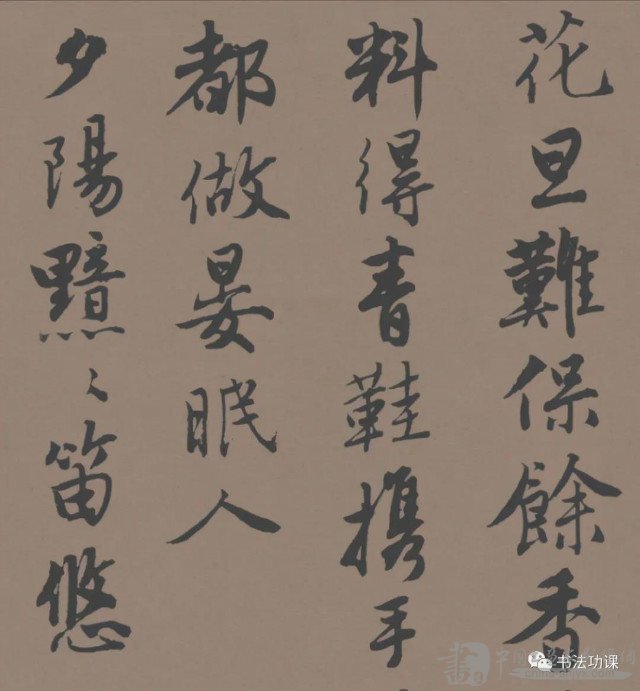 花旦難保餘香
料得青鞋携手
都做晏眠人
夕陽黯〻笛悠
书法功课